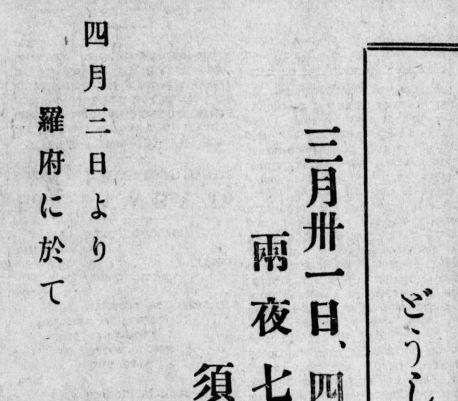 どうし
三月卅一日、四
兩夜七
須
四月三日より
羅府に於て